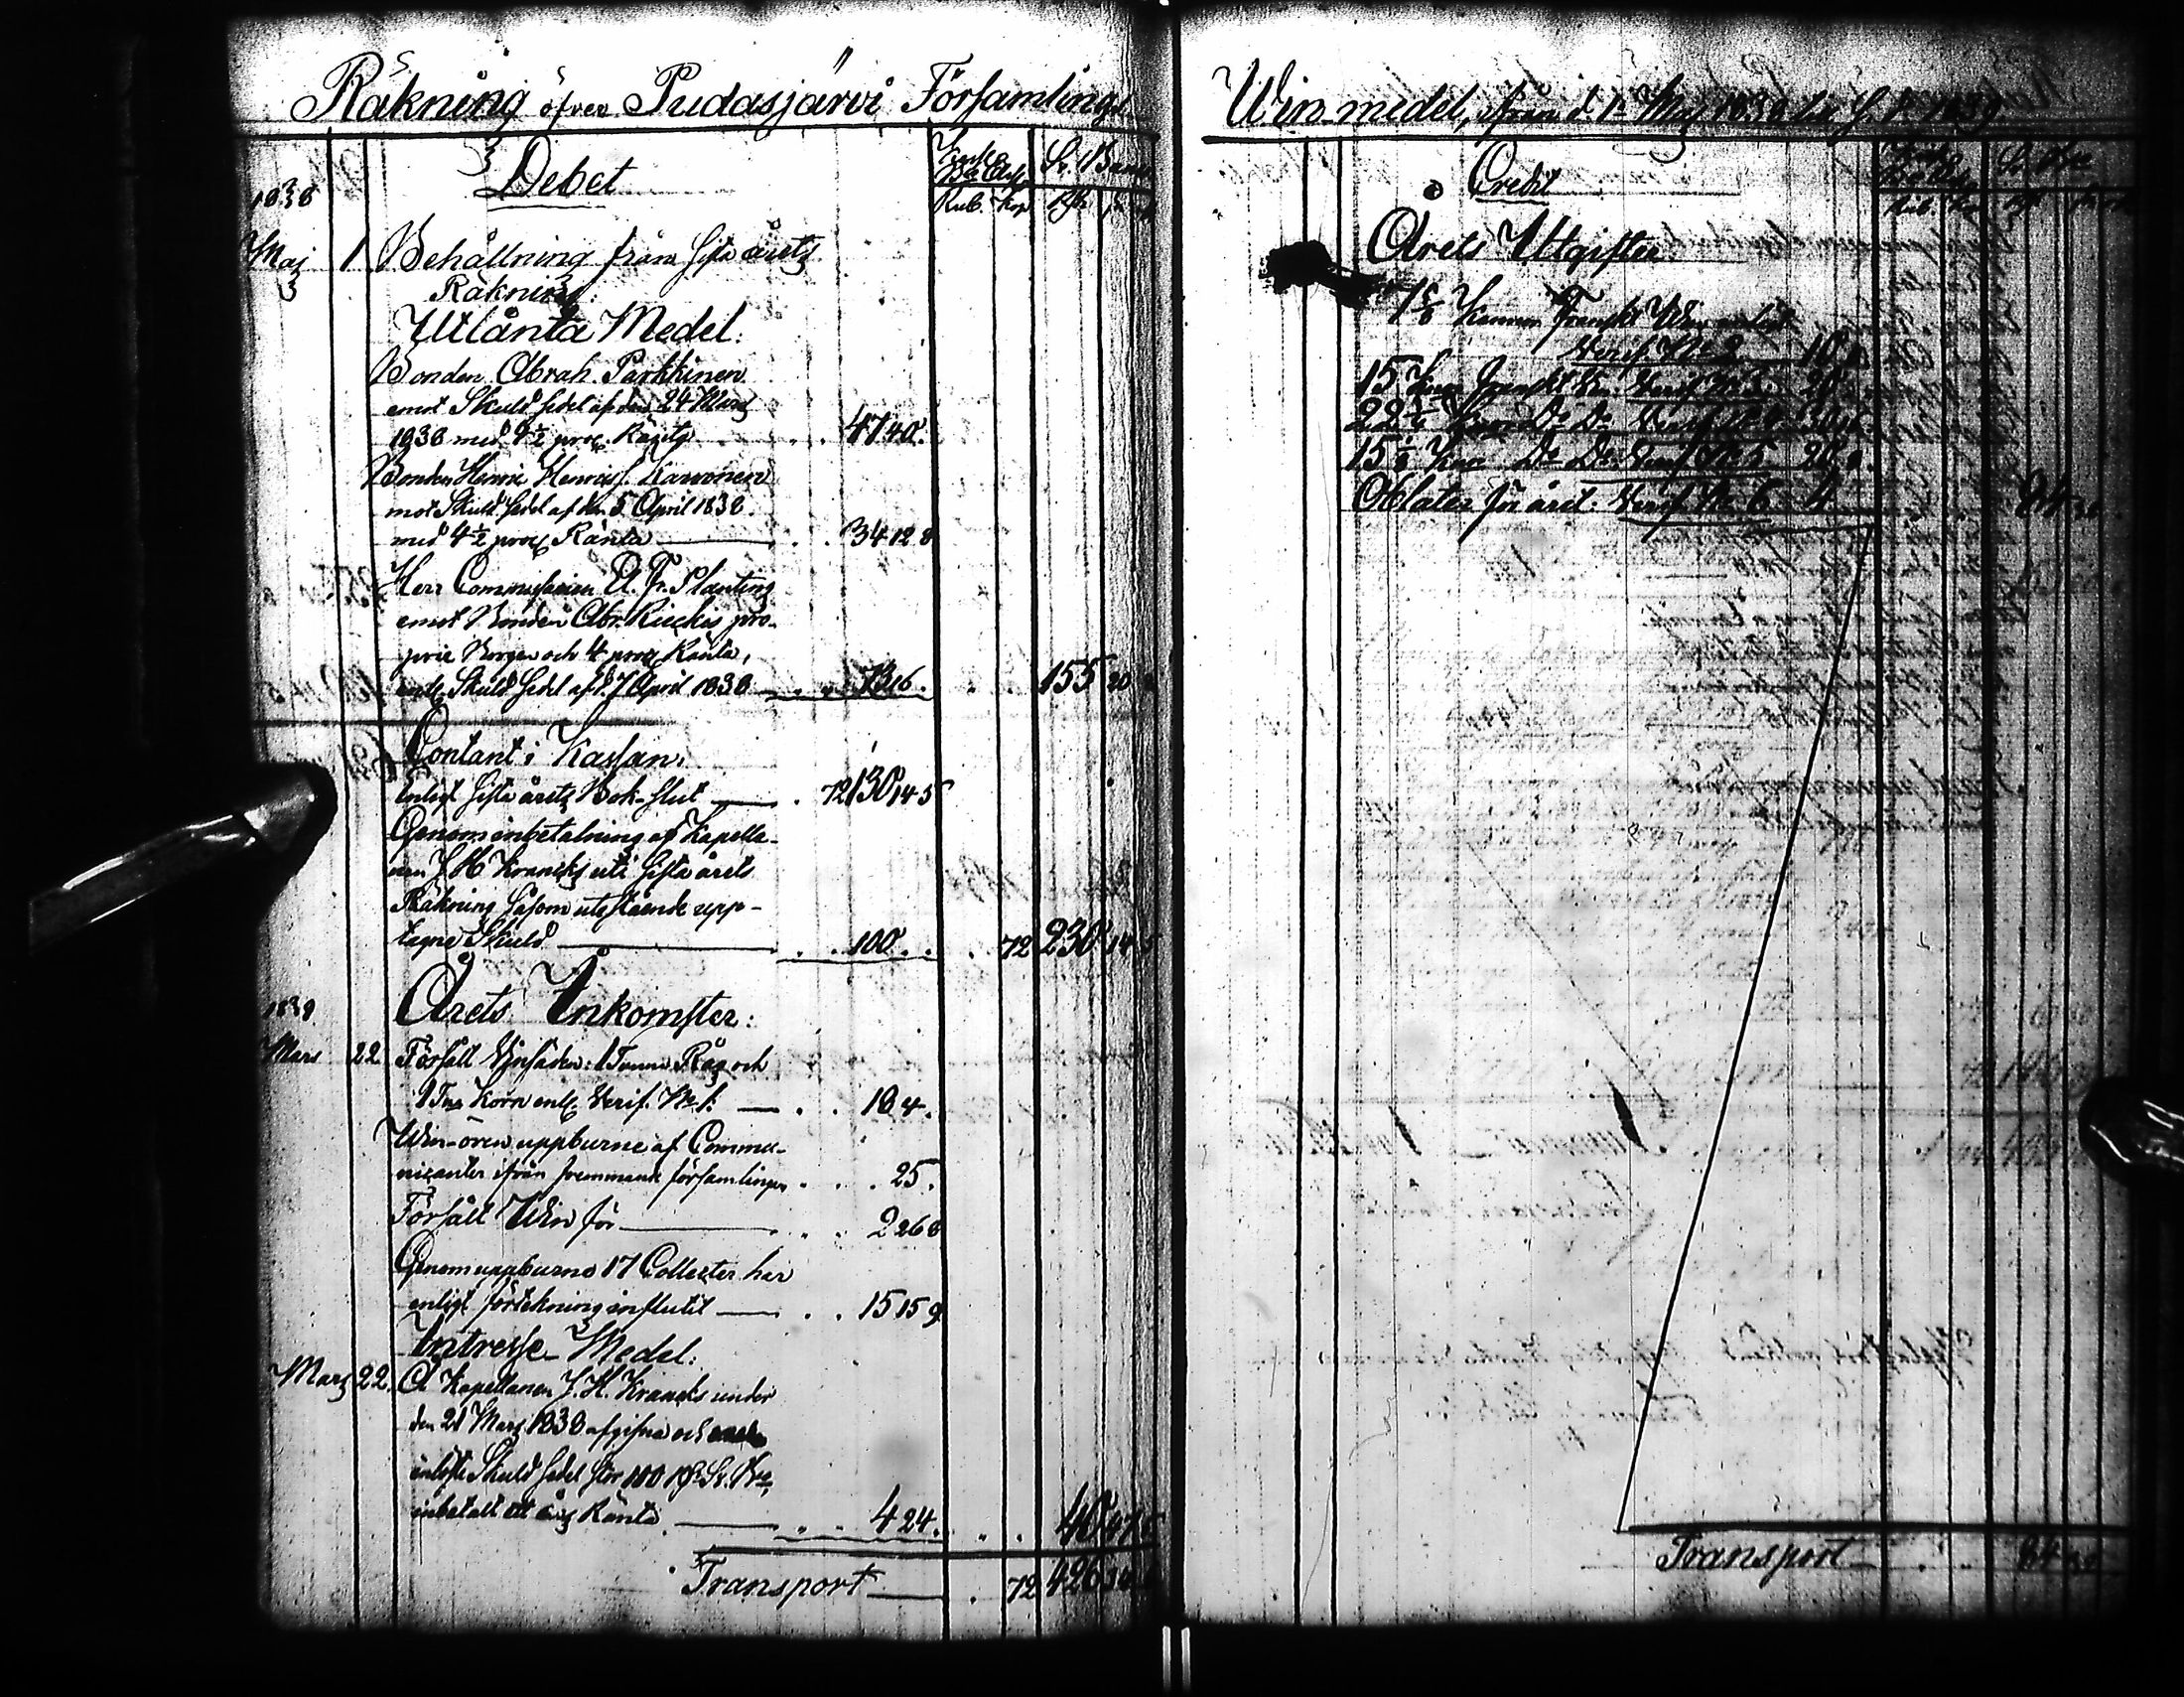 Räkning öfver Pudasjärvi Församlings
Debet
Rub. kop
1838
Maj 1 Behållning från sista årets
Räkning:
Utlånta Medel:
Bonden Abrah. Parkkinen
emot Skuld sedel af den 24 Mars
1838 med 4½ proc. Ränta 47 40.
Bonden Henric Henrics.
mot Skuld sedel af den 5 April 1838
med 4½ proc Ränta 34 12 8
Herr Commissarien A. Fr. Planting
emot Bonden Abr. pro-
prie Borgen och 4 proc Ränta,
enl. Skuld sedel af d. 7 April 1838 73 16. 155 20
Contant i Kassan:
Enligt sista årets Bok-slut 72 130 14 5
Genom inbetalning af Kapella-
nen J H Krancks uti sista årets
Räkning såsom utestående upp-
tagne Skuld 100 72 230 14 5
Årets Inkomster:
1839
Mars 22 Försålt Vinsäden: 1 Tunna Råg och
1 Tna Korn enl. Verif. No 1. 18 4.
Win-ören uppburne af Commu-
nicanter ifrån fremmande församlingar 25.
Försålt Win för 2 26 8
Genom uppburne 17 Collecter har
enligt förtekning influtit 15 15 9
Intresse Medel:
Mars 22. A Kapellanen J. H. Krancks under
den 21 Mars 1838 afgifna och
inlöste Skuld sedel stor 100 R. Sv. Bco,
inbetalt ett års Ränta 4 24.
Transport 72 426
Win-medel, ifrån d. 1 Maj 1838 till s. d. 1839
Credit
Årets Utgifter
Kannor Franskt Win enligt
Verif. No 2
15 Knor Franskt
22 Knor Do Do Verif. No 4
15 Knor Do Do Verif No 5
Oblater för året: Verif. No 6 4 84
Transport 84